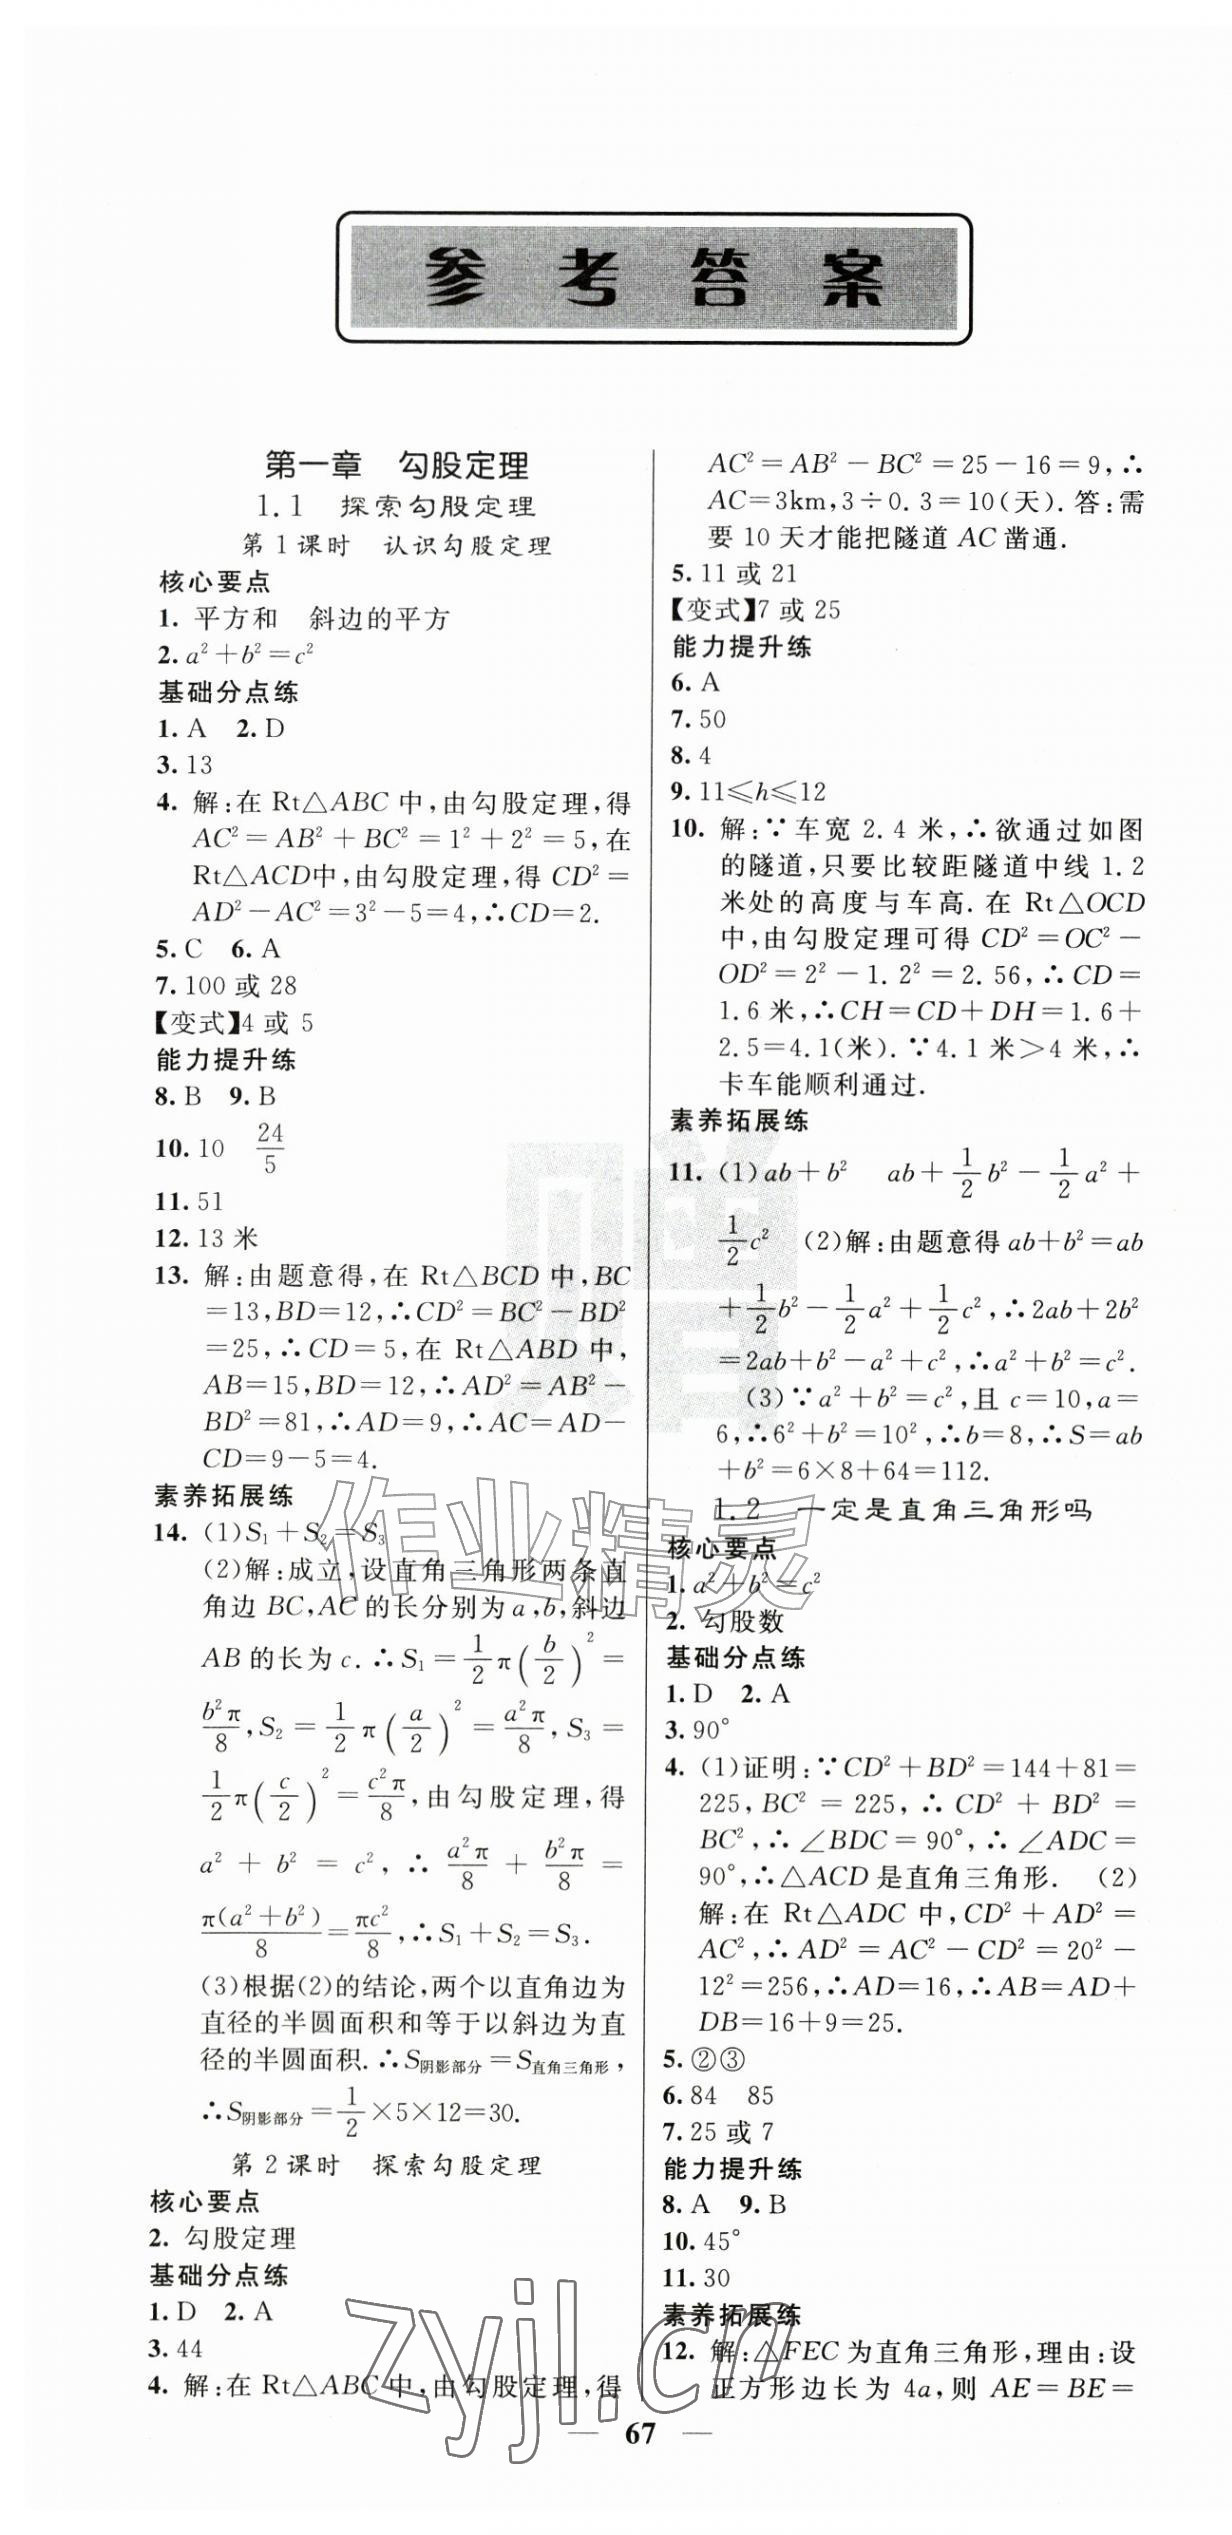 参考答案
第一章 勾股定理
1.1 探索勾股定理
第1课时 认识勾股定理
核心要点
1. 平方和 斜边的平方
2. a²+b²=c²
基础分点练
1. A 2. D
3. 13
4. 解:在 Rt△ABC 中,由勾股定理,得
AC²=AB²+BC²=1²+2²=5,在
Rt△ACD中,由勾股定理,得 CD²=
AD²-AC²=3²-5=4,∴CD=2.
5. C 6. A
7. 100 或 28
【变式】4 或 5
能力提升练
8. B 9. B
10. 10 24/5
11. 51
12. 13 米
13. 解:由题意得,在 Rt△BCD 中,BC
=13,BD=12,∴CD²=BC²-BD²
=25,∴CD=5,在 Rt△ABD 中,
AB=15,BD=12,∴AD²=AB²-
BD²=81,∴AD=9,∴AC=AD-
CD=9-5=4.
素养拓展练
14. (1)S₁+S₂=S₃
(2)解:成立,设直角三角形两条直
角边 BC,AC 的长分别为 a,b,斜边
AB 的长为 c.∴S₁=1/2π(b/2)²=
b²π/8,S₂=1/2π(a/2)²=a²π/8,S₃=
1/2π(c/2)²=c²π/8,由勾股定理,得
a²+b²=c²,∴a²π/8+b²π/8=
π(a²+b²)/8=πc²/8,∴S₁+S₂=S₃.
(3)根据(2)的结论,两个以直角边为
直径的半圆面积和等于以斜边为直
径的半圆面积.∴S阴影部分=S直角三角形,
∴S阴影部分=1/2×5×12=30.
第2课时 探索勾股定理
核心要点
2. 勾股定理
基础分点练
1. D 2. A
3. 44
4. 解:在 Rt△ABC 中,由勾股定理,得
AC²=AB²-BC²=25-16=9,∴
AC=3km,3÷0.3=10(天).答:需
要 10 天才能把隧道 AC 凿通.
5. 11 或 21
【变式】7 或 25
能力提升练
6. A
7. 50
8. 4
9. 11⩽h⩽12
10. 解:∵车宽 2.4 米,∴欲通过如图
的隧道,只要比较距隧道中线 1.2
米处的高度与车高.在 Rt△OCD
中,由勾股定理可得 CD²=OC²-
OD²=2²-1.2²=2.56,∴CD=
1.6米,∴CH=CD+DH=1.6+
2.5=4.1(米).∵4.1米>4米,∴
卡车能顺利通过.
素养拓展练
11. (1)ab+b² ab+1/2b²-1/2a²+
1/2c² (2)解:由题意得 ab+b²=ab
+1/2b²-1/2a²+1/2c²,∴2ab+2b²
=2ab+b²-a²+c²,∴a²+b²=c².
(3)∵a²+b²=c²,且 c=10,a=
6,∴6²+b²=10²,∴b=8,∴S=ab
+b²=6×8+64=112.
1.2 一定是直角三角形吗
核心要点
1. a²+b²=c²
2. 勾股数
基础分点练
1. D 2. A
3. 90°
4. (1)证明:∵CD²+BD²=144+81=
225,BC²=225,∴CD²+BD²=
BC²,∴∠BDC=90°,∴∠ADC=
90°,∴△ACD是直角三角形. (2)
解:在 Rt△ADC 中,CD²+AD²=
AC²,∴AD²=AC²-CD²=20²-
12²=256,∴AD=16,∴AB=AD+
DB=16+9=25.
5. ②③
6. 84 85
7. 25 或 7
能力提升练
8. A 9. B
10. 45°
11. 30
素养拓展练
12. 解:△FEC 为直角三角形,理由:设
正方形边长为 4a,则 AE=BE=
— 67 —
赠
作业精灵
zyjl.cn